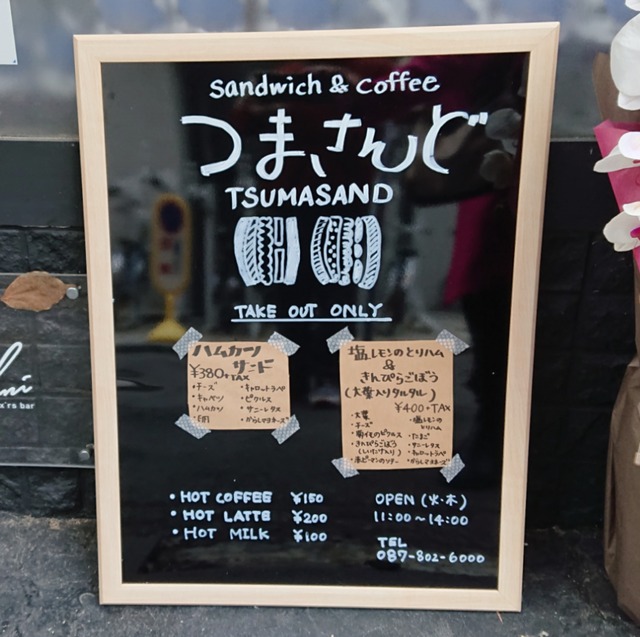 sandwich & coffee
つまさんど
TSUMASAND
TAKE OUT ONLY
ハムカツ
サンド
¥380+TAX
・チーズ ・キャロットラペ
・キャベツ ・ピクルス
・ハムカツ ・サニーレタス
・からしマヨネーズ
塩レモンのとりハム
&
きんぴらごぼう
(大葉入りタルタル)
¥400+TAX
・大葉 ・塩レモンの
とりハム
・チーズ
・菊イモのピクルス ・たまご
・きんぴらごぼう ・サニーレタス
(しいたけ入り) ・キャロットラペ
・からしマヨネーズ
・HOT COFFEE ¥150
・HOT LATTE ¥200
・HOT MILK ¥100
OPEN (火・木)
11:00~14:00
TEL
087-802-6000
x'rs bar